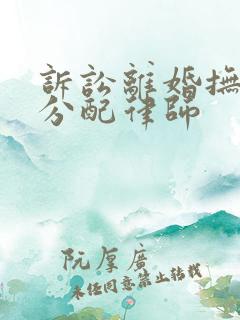 訴訟離婚撫
分配律師
阮厚廣
未經同意禁止轉載